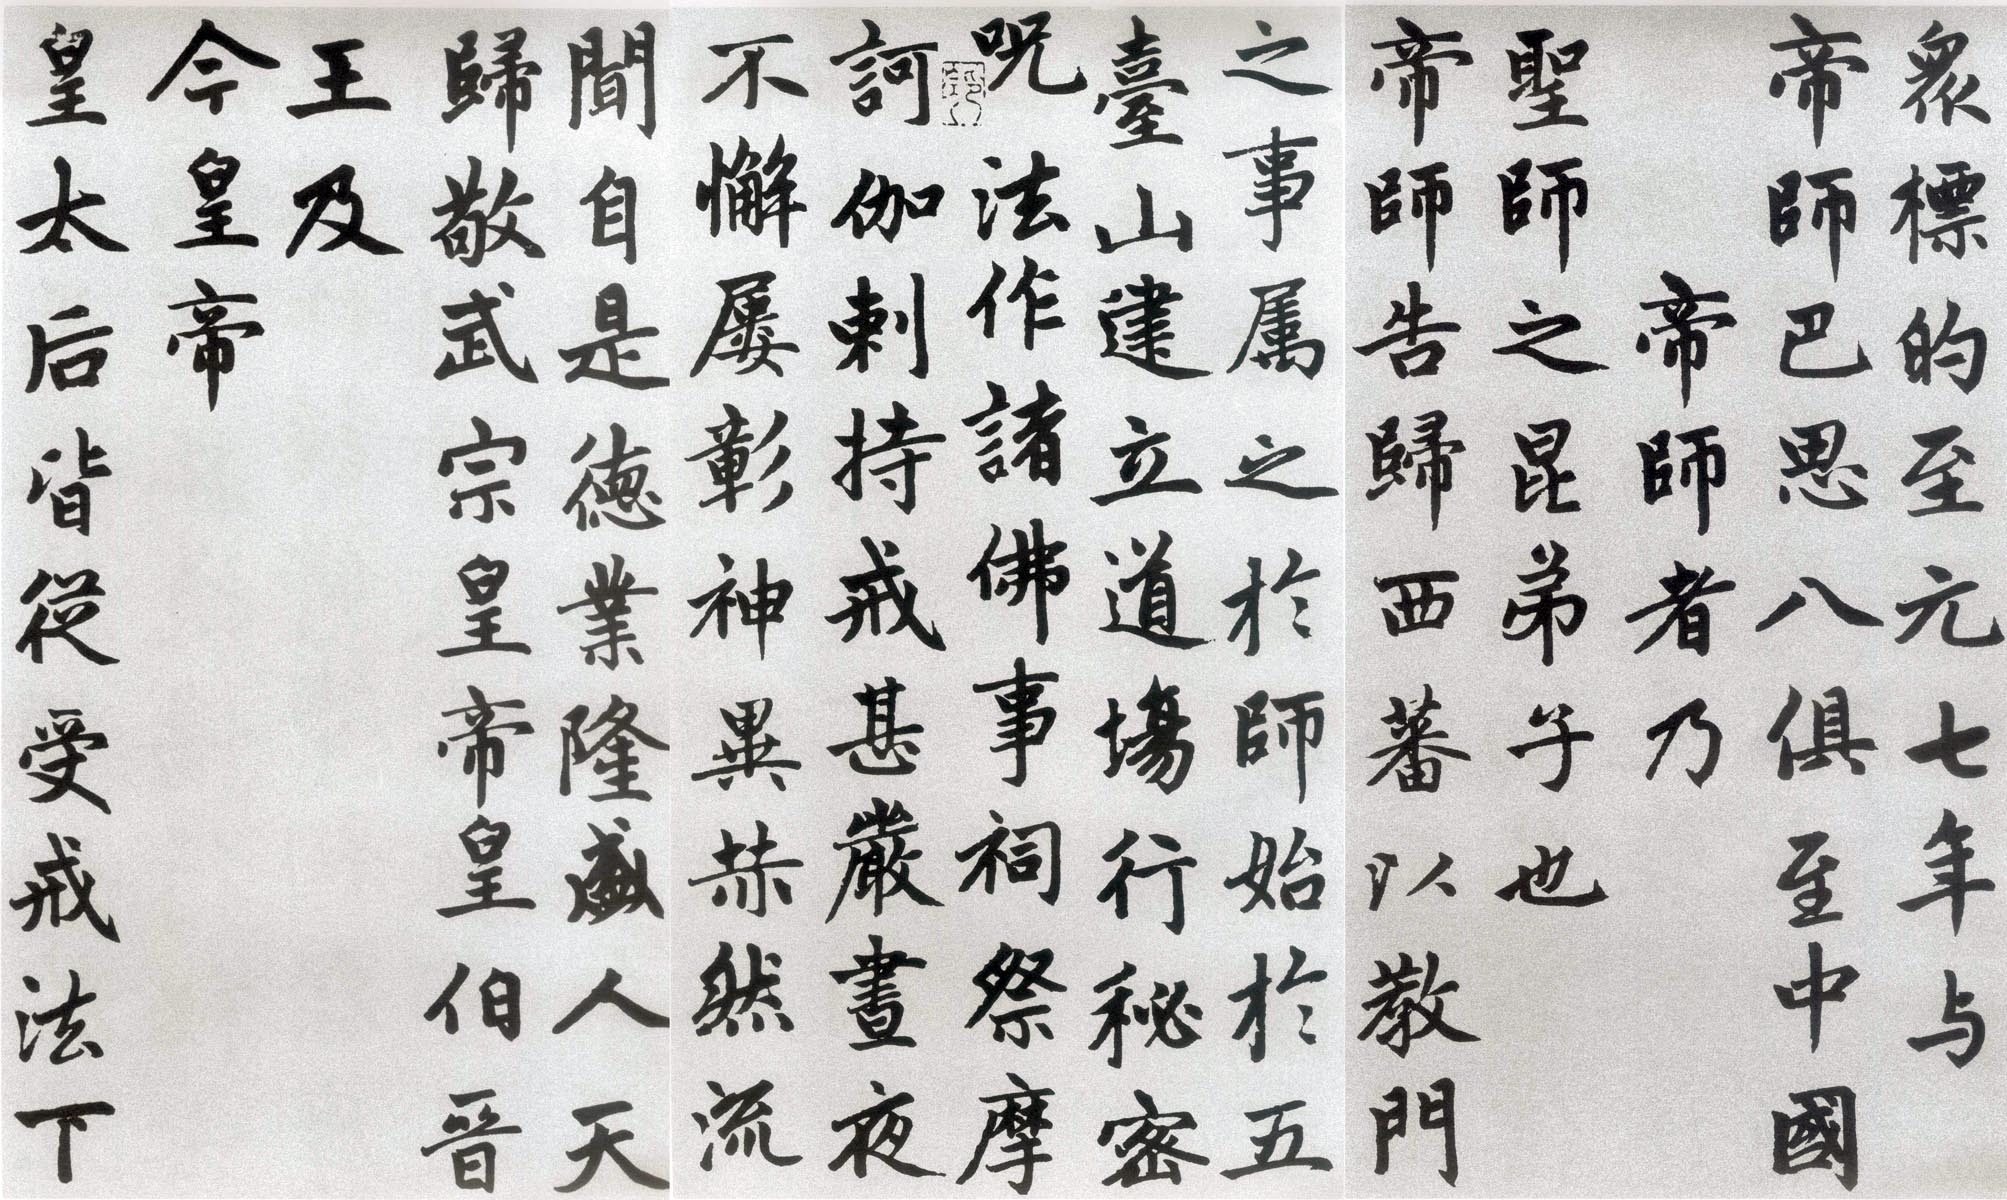 眾標的至元七年与
帝師巴思八俱至中國
帝師者乃
聖師之昆弟子也
帝師告歸西蕃以教門
之事属之於師始於五
臺山建立道場行秘密
呪法作諸佛事祠祭摩
訶伽剌持戒甚嚴晝夜
不懈屢彰神異赫然流
聞自是德業隆盛人天
歸敬武宗皇帝皇伯晉
王及
今皇帝
皇太后皆從受戒法下